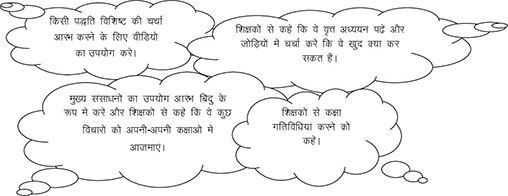 किसी पद्धति विशिष्ट की चर्चा
आरंभ करने के लिए वीडियो
का उपयोग करें।
शिक्षकों से कहें कि वे वृत्त अध्ययन पढ़ें और
जोड़ियों में चर्चा करें कि वे खुद क्या कर
सकते हैं।
मुख्य संसाधनों का उपयोग आरंभ बिंदु के
रूप में करें और शिक्षकों से कहें कि वे कुछ
विचारों को अपनी-अपनी कक्षाओं में
आजमाएं।
शिक्षकों से कक्षा
गतिविधियां करने को
कहें।